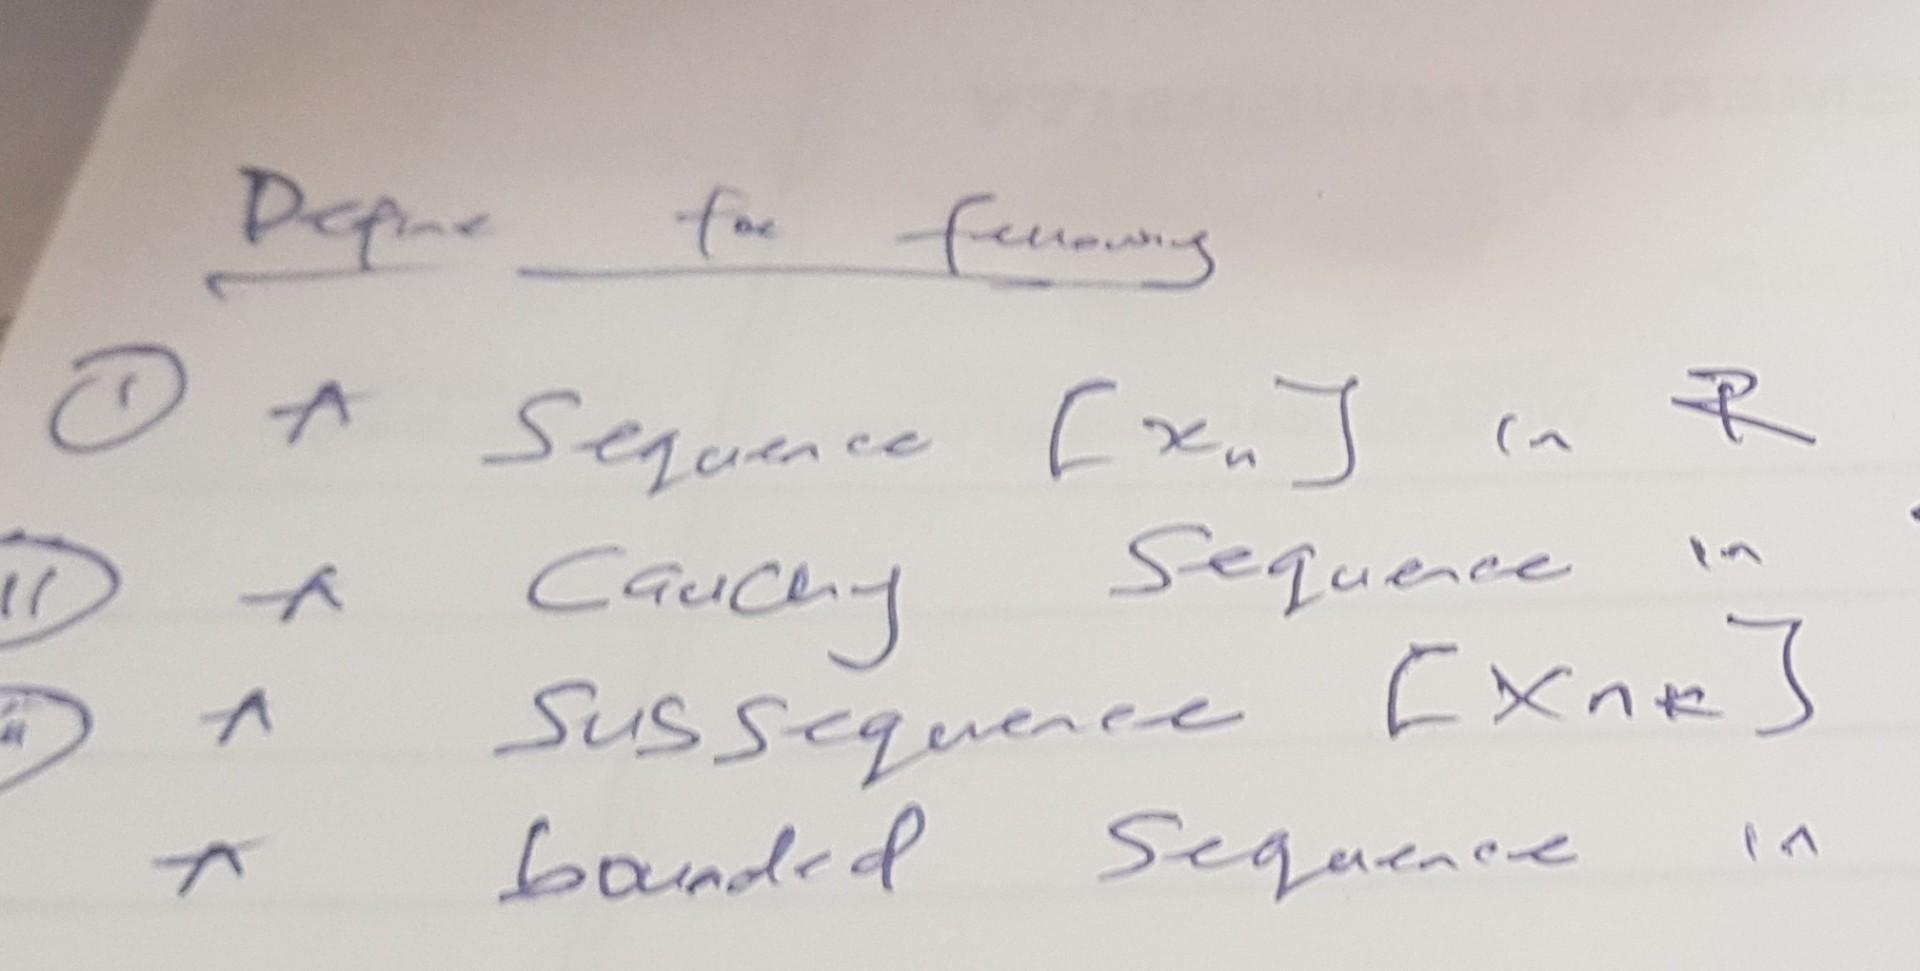 Define the following
(i) A Sequence [xₙ] in ℝ
(ii) A Cauchy Sequence in
(iii) A Subsequence [xnk]
A bounded Sequence in